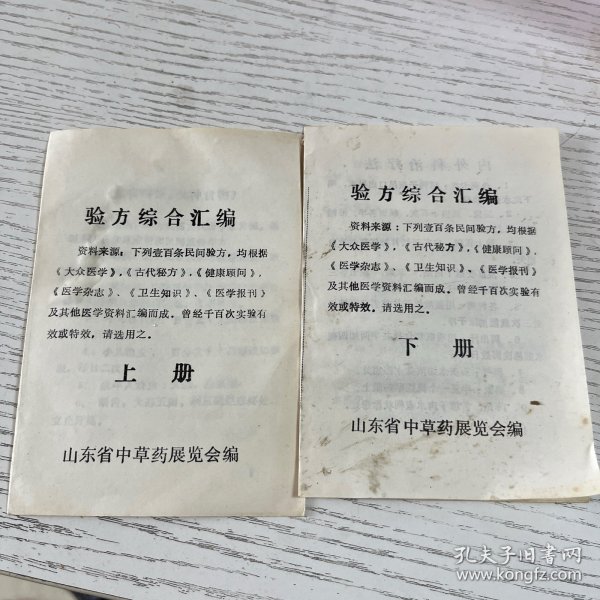 验方综合汇编
资料来源：下列壹百条民间验方，均根据
《大众医学》，《古代秘方》，《健康顾问》，
《医学杂志》、《卫生知识》、《医学报刊》
及其他医学资料汇编而成。曾经千百次实验有
效或特效，请选用之。
上 册
山东省中草药展览会编
验方综合汇编
资料来源：下列壹百条民间验方，均根据
《大众医学》，《古代秘方》，《健康顾问》，
《医学杂志》、《卫生知识》、《医学报刊》
及其他医学资料汇编而成。曾经千百次实验有
效或特效。请选用之。
下 册
山东省中草药展览会编
内外科治疗法
孔夫子旧书网
www.kongfz.com